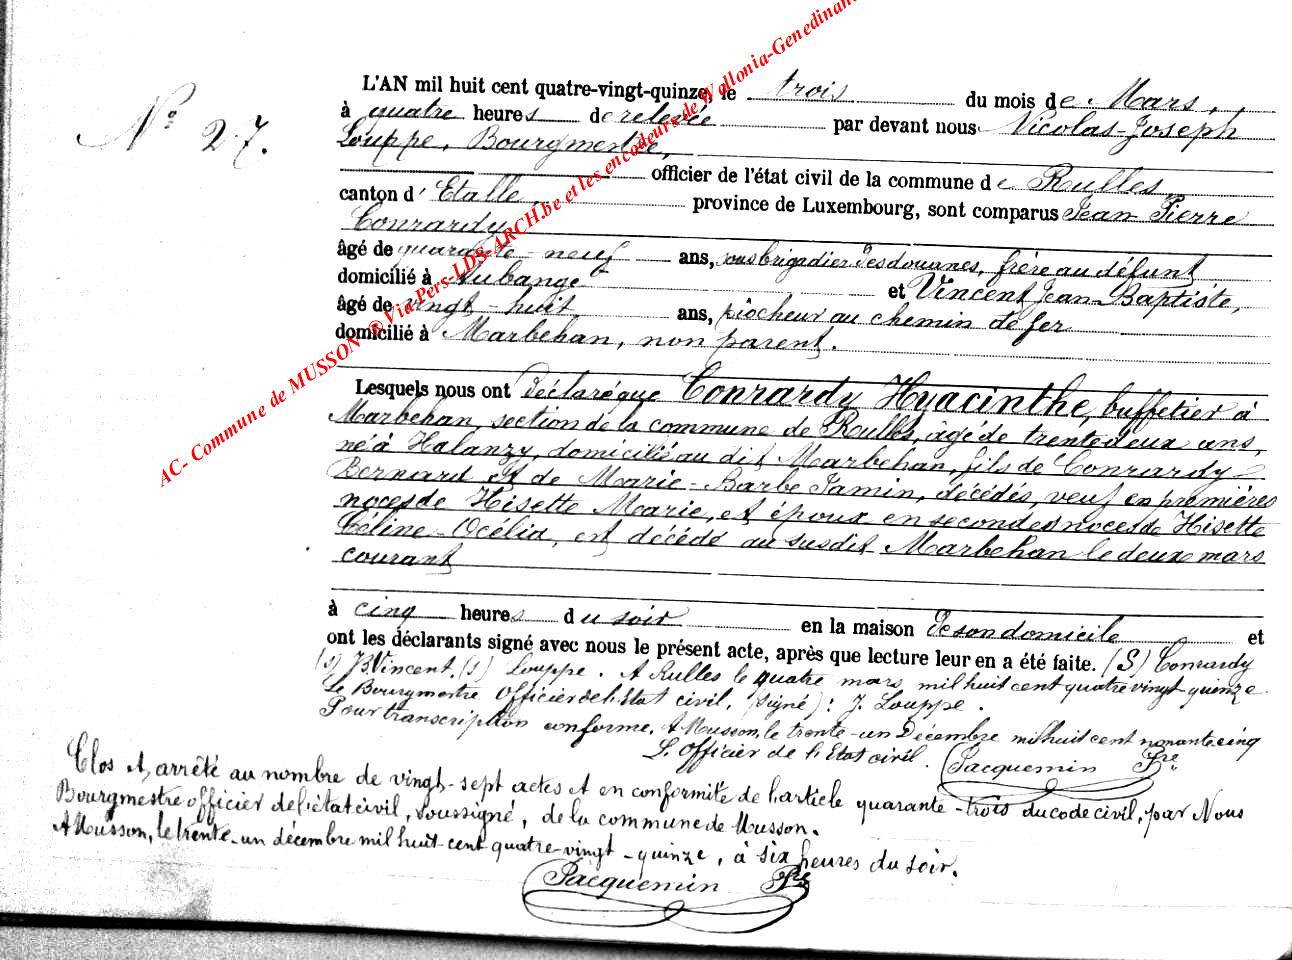 AC- Commune de MUSSON @ Via Pers-LDS-ARCH.be et les encodeurs de Wallonia-Genedinant
L'AN mil huit cent quatre-vingt-quinze, le trois du mois de Mars,
N° 27.
à quatre heures de relevée par devant nous Nicolas-Joseph
Louppe, Bourgmestre,
officier de l'état civil de la commune de Rulles,
canton d' Etalle, province de Luxembourg, sont comparus Jean Pierre
Conrardy
âgé de quarante-neuf ans, sous brigadier des douanes, frère au défunt
domicilié à Aubange et Vincent Jean-Baptiste,
âgé de vingt-huit ans, piocheur au chemin de fer
domicilié à Marbehan, non parent.
Lesquels nous ont déclaré que Conrardy Hyacinthe, buffetier à
Marbehan, section de la commune de Rulles, âgé de trente deux ans,
né à Halanzy, domicilié au dit Marbehan, fils de Conrardy
Bernard et de Marie-Barbe Jamin, décédés, veuf en premières
noces de Hisette Marie, et époux en secondes noces de Hisette
Céline-Océlia, est décédé au susdit Marbehan le deux mars
courant
à cinq heures du soir en la maison de son domicile et
ont les déclarants signé avec nous le présent acte, après que lecture leur en a été faite. (S) Conrardy
(s) JB Vincent, (s) Louppe. A Rulles le quatre mars mil huit cent quatre vingt quinze
Le Bourgmestre Officier de l'Etat civil, (signé): J. Louppe.
Pour transcription conforme. A Musson, le trente-un Décembre mil huit cent nonante cinq
L'Officier de l'Etat civil. Jacquemin
Clos et arrêté au nombre de vingt-sept actes et en conformité de l'article quarante-trois du code civil, par Nous
Bourgmestre officier de l'état civil, soussigné, de la commune de Musson.
A Musson, le trente-un décembre mil huit-cent quatre-vingt-quinze, à six heures du soir.
Jacquemin